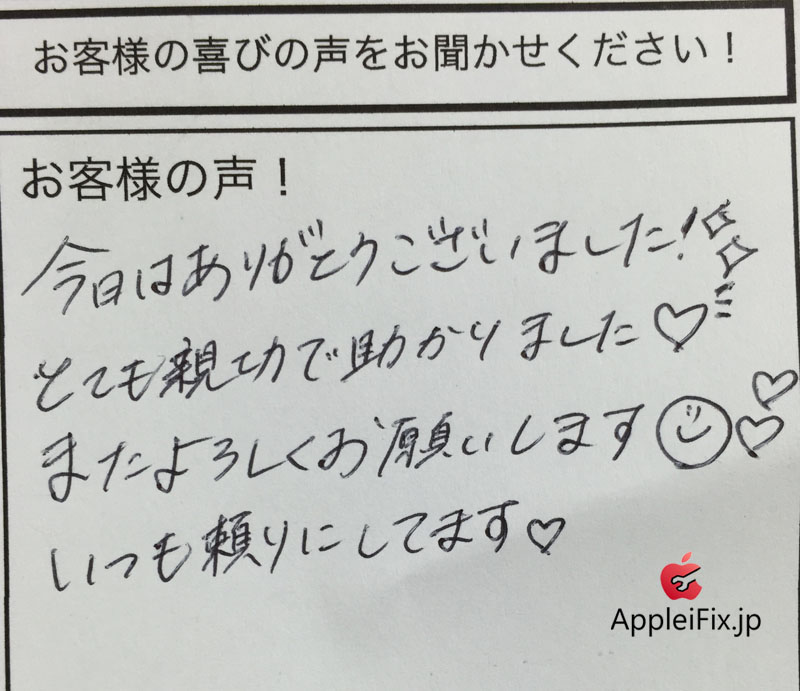 お客様の喜びの声をお聞かせください！
お客様の声！
今日はありがとうございました！
とても親切で助かりました♡
またよろしくお願いします
いつも頼りにしてます♡
AppleiFix.jp